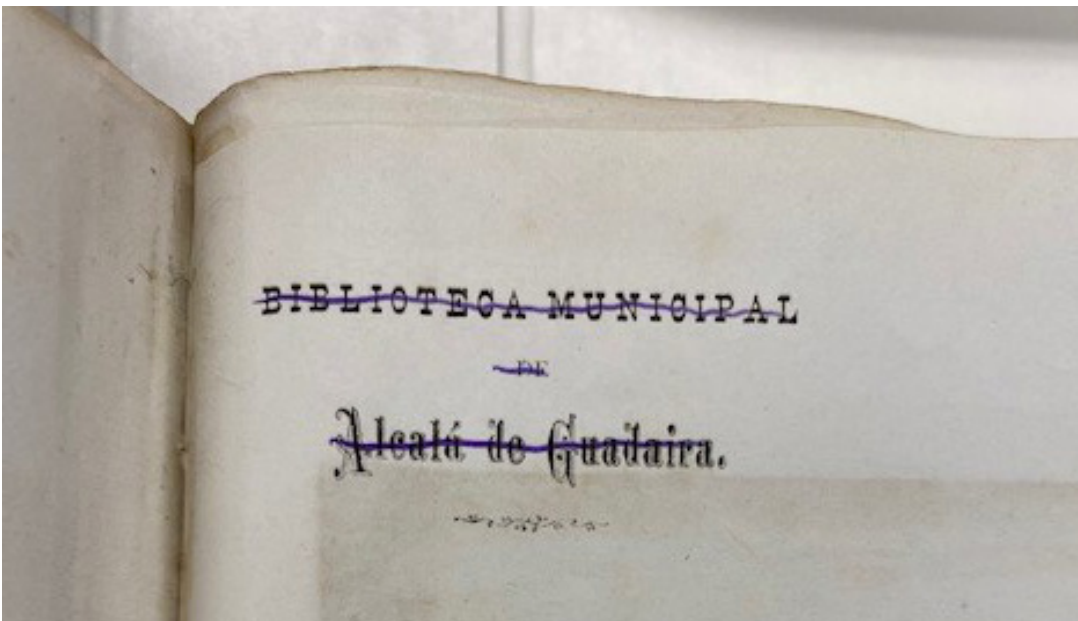 BIBLIOTECA MUNICIPAL
DE
Alcalá de Guadaira.